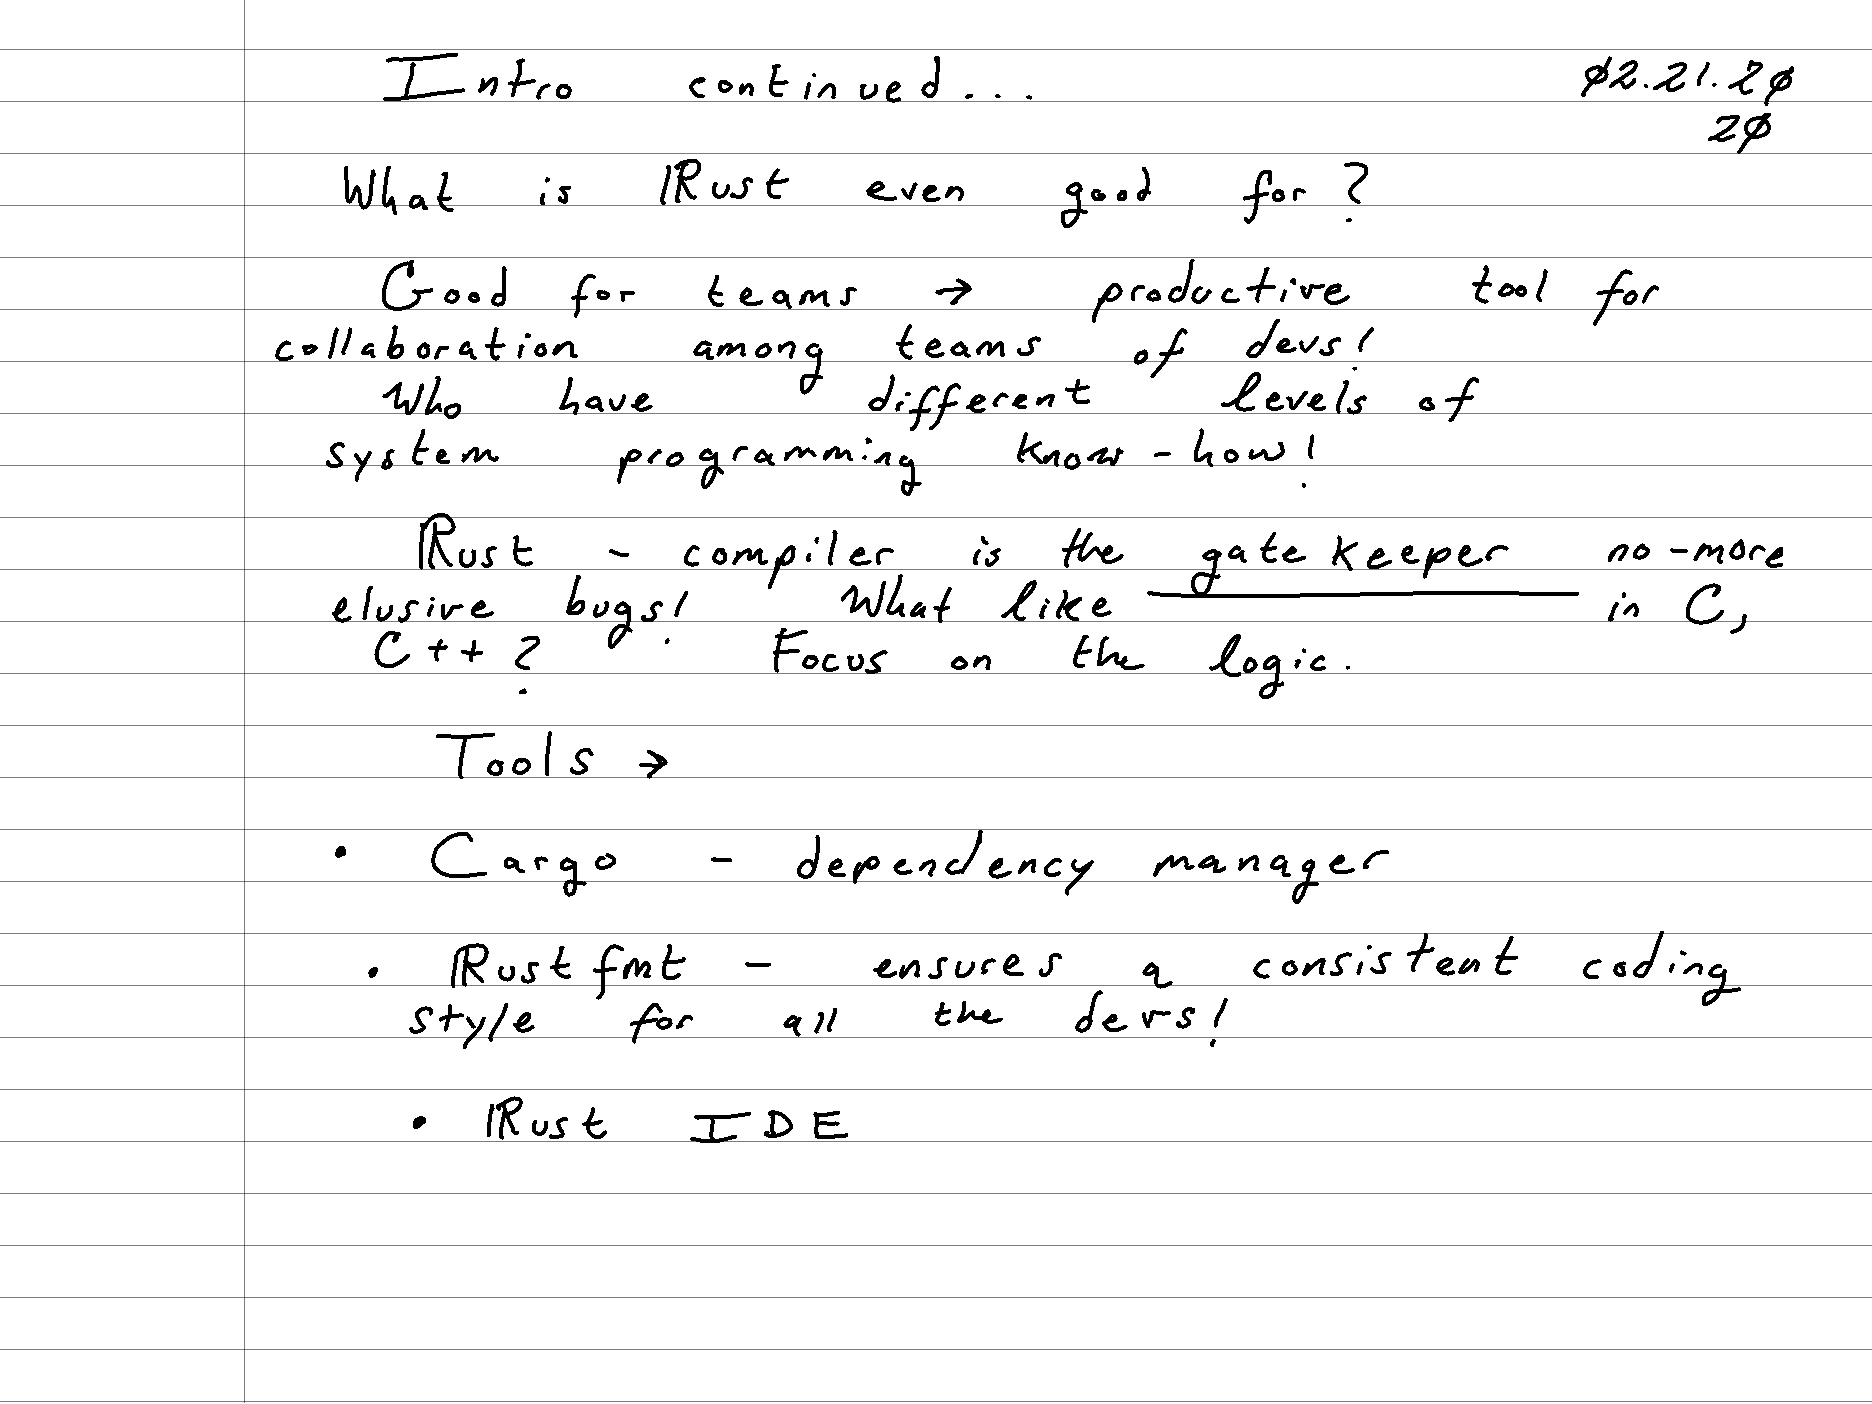 Intro continued... ø2.21.2ø
2ø
What is Rust even good for?
Good for teams → productive tool for
collaboration among teams of devs!
Who have different levels of
system programming know-how!
Rust - compiler is the gate keeper no-more
elusive bugs! What like in C,
C++? Focus on the logic.
Tools →
• Cargo - dependency manager
• Rustfmt - ensures a consistent coding
style for all the devs!
• Rust IDE